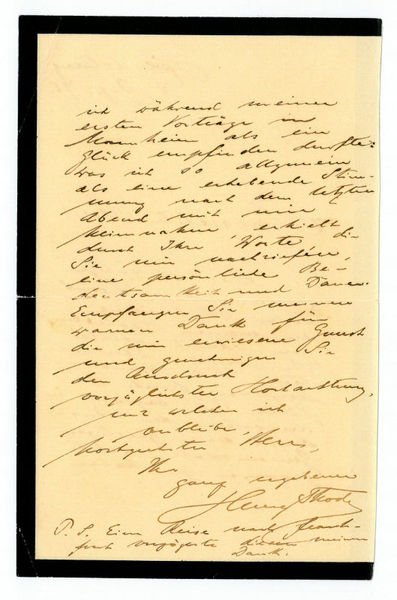 ich während meiner
ersten Vorträge in
Mannheim als ein
Glück empfinden durfte:
was ich so allgemein
als eine erhebende Stim-
mung nach dem letzten
Abend mit mir
heimnahm, erhielt
durch Ihre Worte, die
Sie mir nachriefen,
eine persönliche Be-
und Dauer.
Empfangen Sie meinen
warmen Dank für
die mir erwiesene Gunst
und genehmigen Sie
den Ausdruck
vorzüglichster Hochachtung,
mit welcher ich
verbleibe,
hochgeehrter Herr,
Ihr
ganz ergebener
Henry Thode
P. S. Eine Reise nach Frank-
furt verzögerte diesen meinen
Dank.